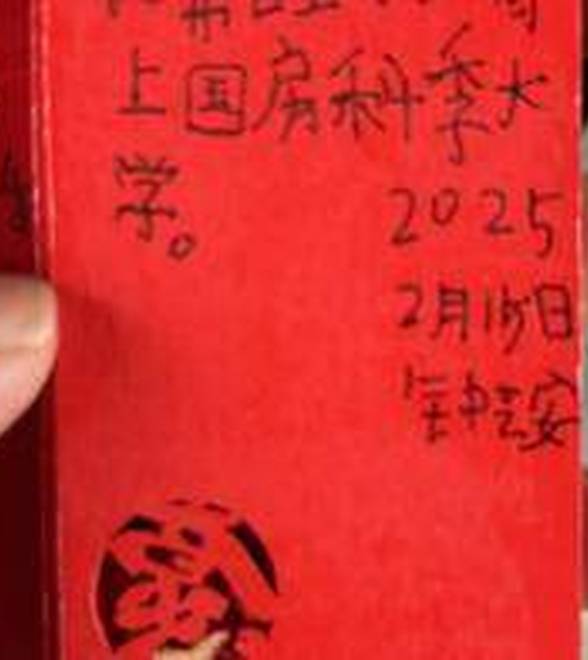 上国房科季大
学。
2025
2月15日
钟芸安